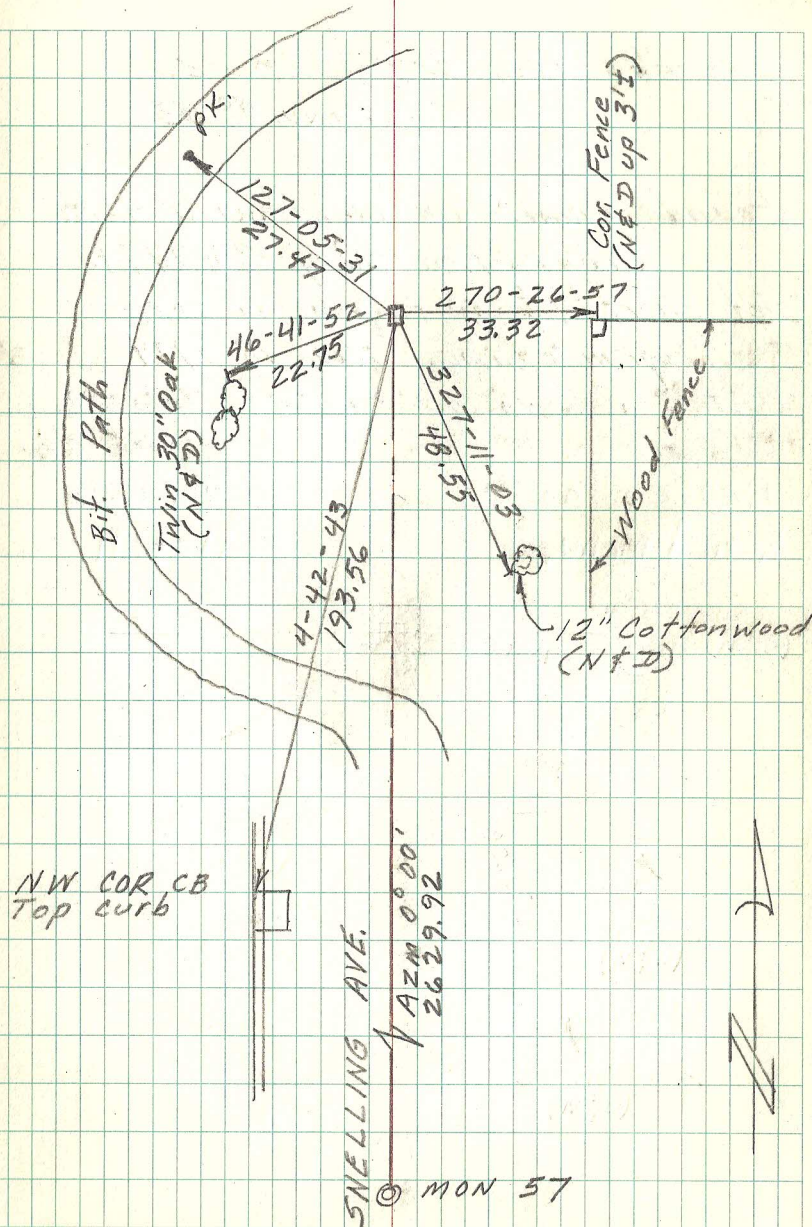 PK.
127-05-31
27.47
Cor. Fence
(N&D up 3'±)
270-26-57
33.32
46-41-52
22.75
Twin 30" Oak
(N&D)
Bit. Path
327-11-03
48.55
Wood Fence
12" Cottonwood
(N&D)
4-42-43
193.56
NW COR CB
Top curb
SNELLING AVE.
Azm 0°00'
2629.92
N
MON 57